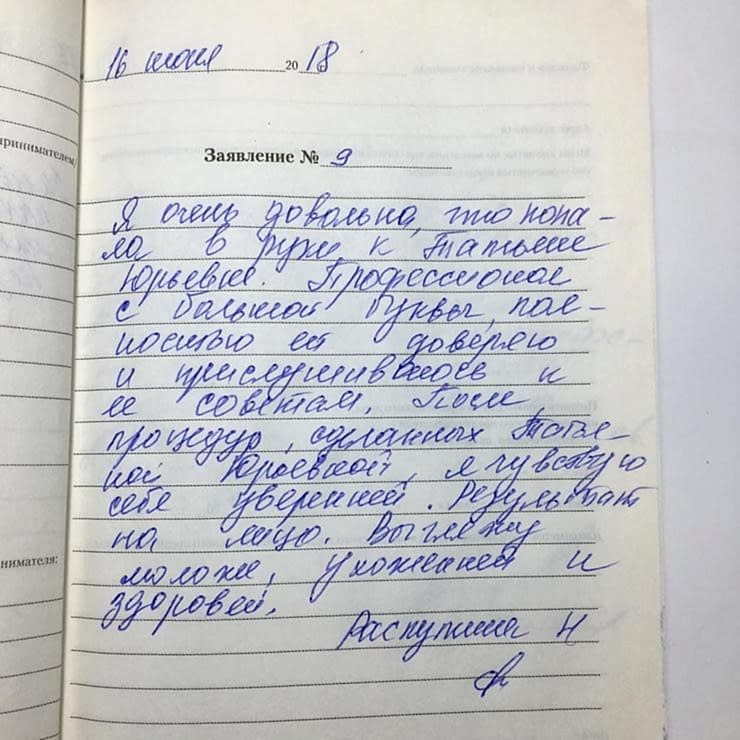 16 июня 2018
ринимателем
Заявление № 9
Я очень довольна, что попа-
ла в руки к Татьяне
Юрьевне. Профессионал
с большой буквы, пол-
ностью ей доверяю
и прислушиваюсь к
ее советам. После
процедур, сделанных Татья-
ной Юрьевной, я чувствую
себя уверенней. Результат
на лицо. Выгляжу
нимателя:
моложе, ухоженней и
здоровей.
Распутина Н